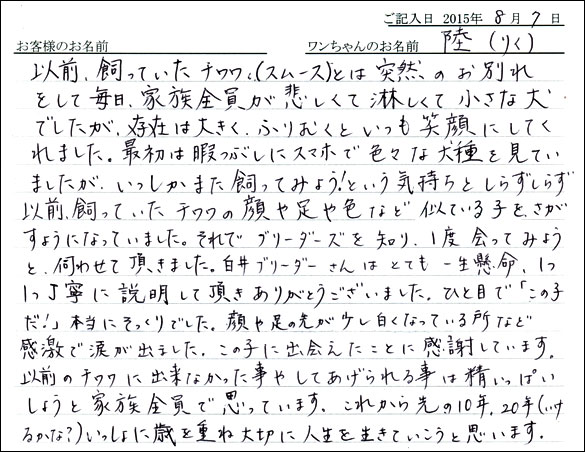 ご記入日 2015年 8月 7日
お客様のお名前 ワンちゃんのお名前 陸(りく)
以前、飼っていたチワワ、(スムース)とは突然、のお別れ
をして毎日、家族全員が悲しくて淋しくて小さな犬
でしたが、存在は大きく、ふりむくといつも笑顔にしてく
れました。最初は暇つぶしにスマホで色々な犬種を見てい
ましたが、いつしかまた飼ってみよう!という気持ちとしらずしらず
以前、飼っていたチワワの顔や足や色など似ている子を、さが
すようになっていました。それでブリーダーズを知り、1度会ってみよう
と、伺わせて頂きました。臼井ブリーダーさんはとても一生懸命、1つ
1つ丁寧に説明して頂きありがとうございました。ひと目で「この子
だ!」本当にそっくりでした。顔や足の先が少し白くなっている所など
感激で涙が出ました。この子に出会えたことに感謝しています。
以前のチワワに出来なかった事やしてあげられる事は精いっぱい
しようと家族全員で思っています。これから先の10年、20年(いけ
るかな?)いっしょに歳を重ね大切に人生を生きていこうと思います。